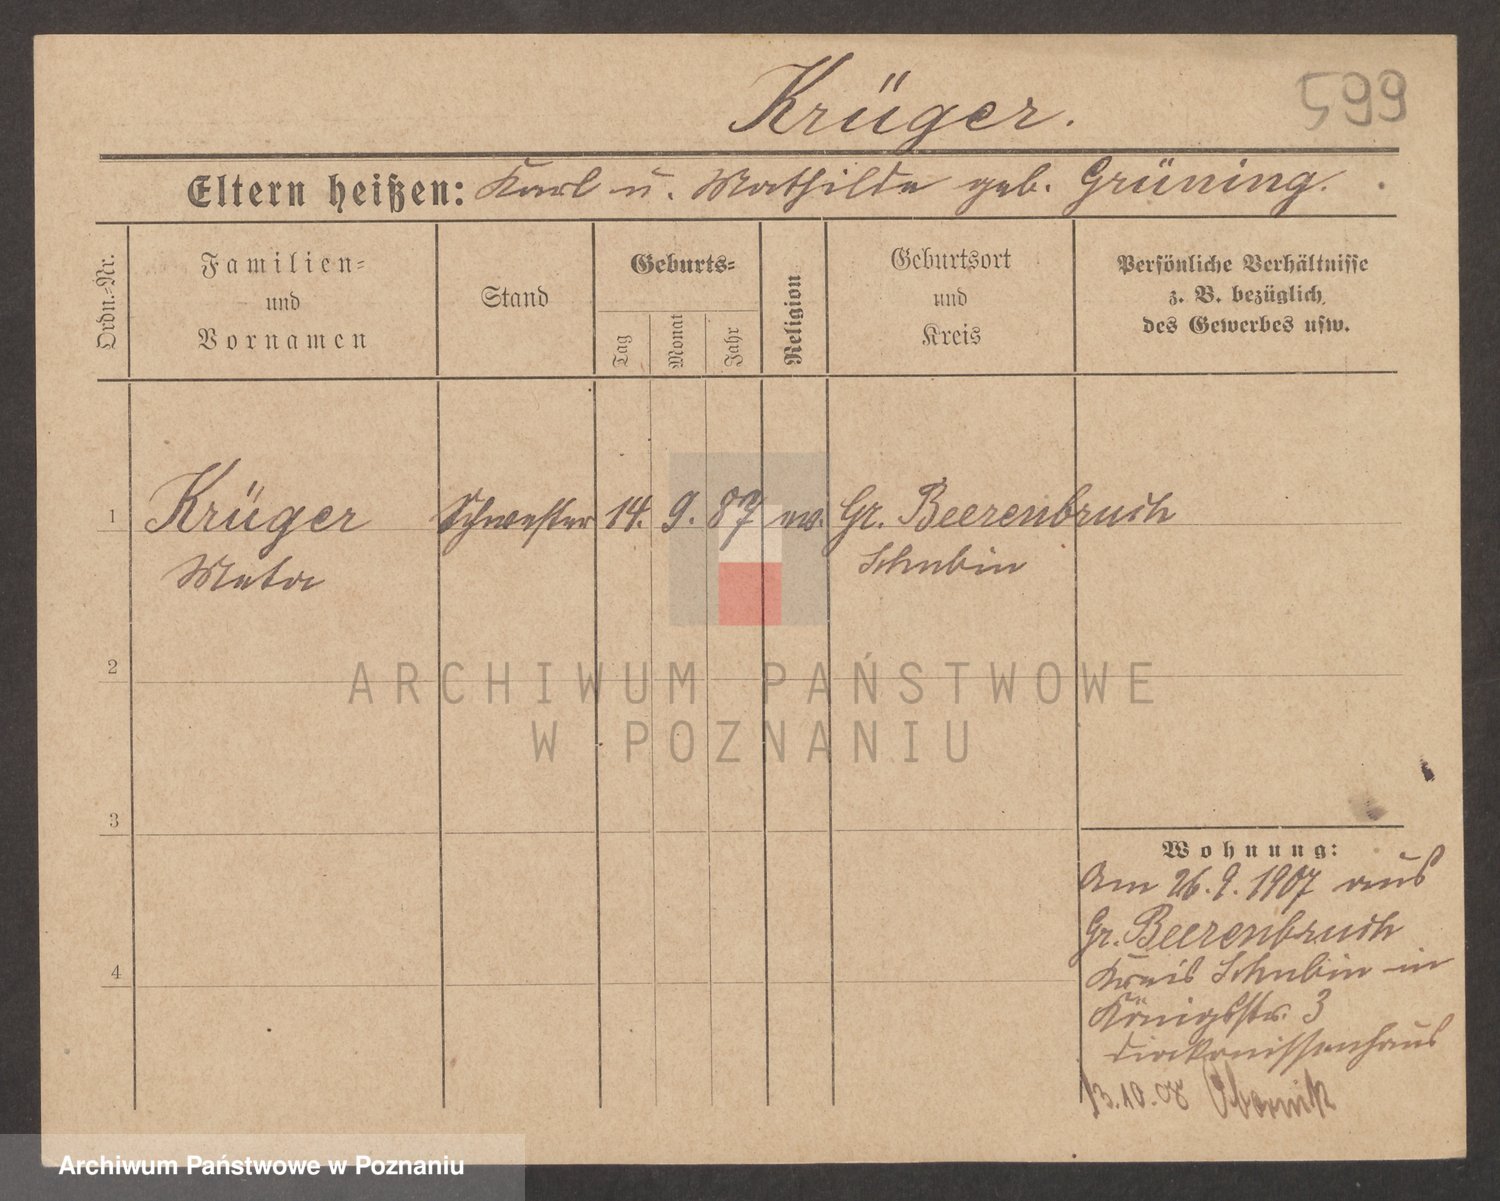 599
Krüger.
Eltern heißen: Karl u. Mathilde geb. Grüning.
Ordn.-Nr.
Familien-
und
Vornamen
Stand
Geburts-
Tag
Monat
Jahr
Religion
Geburtsort
und
Kreis
Persönliche Verhältnisse
z. B. bezüglich
des Gewerbes usw.
1 Krüger Schwester 14. 9. 87 ev. Gr. Beerenbruch
Meta Schubin
2
ARCHIWUM PAŃSTWOWE
W POZNANIU
3
Wohnung:
Am 26.9.1907 aus
Gr. Beerenbruch
Kreis Schubin in
4
Königsstr. 3
Diakonissenhaus
13.10.08 Obornik
Archiwum Państwowe w Poznaniu